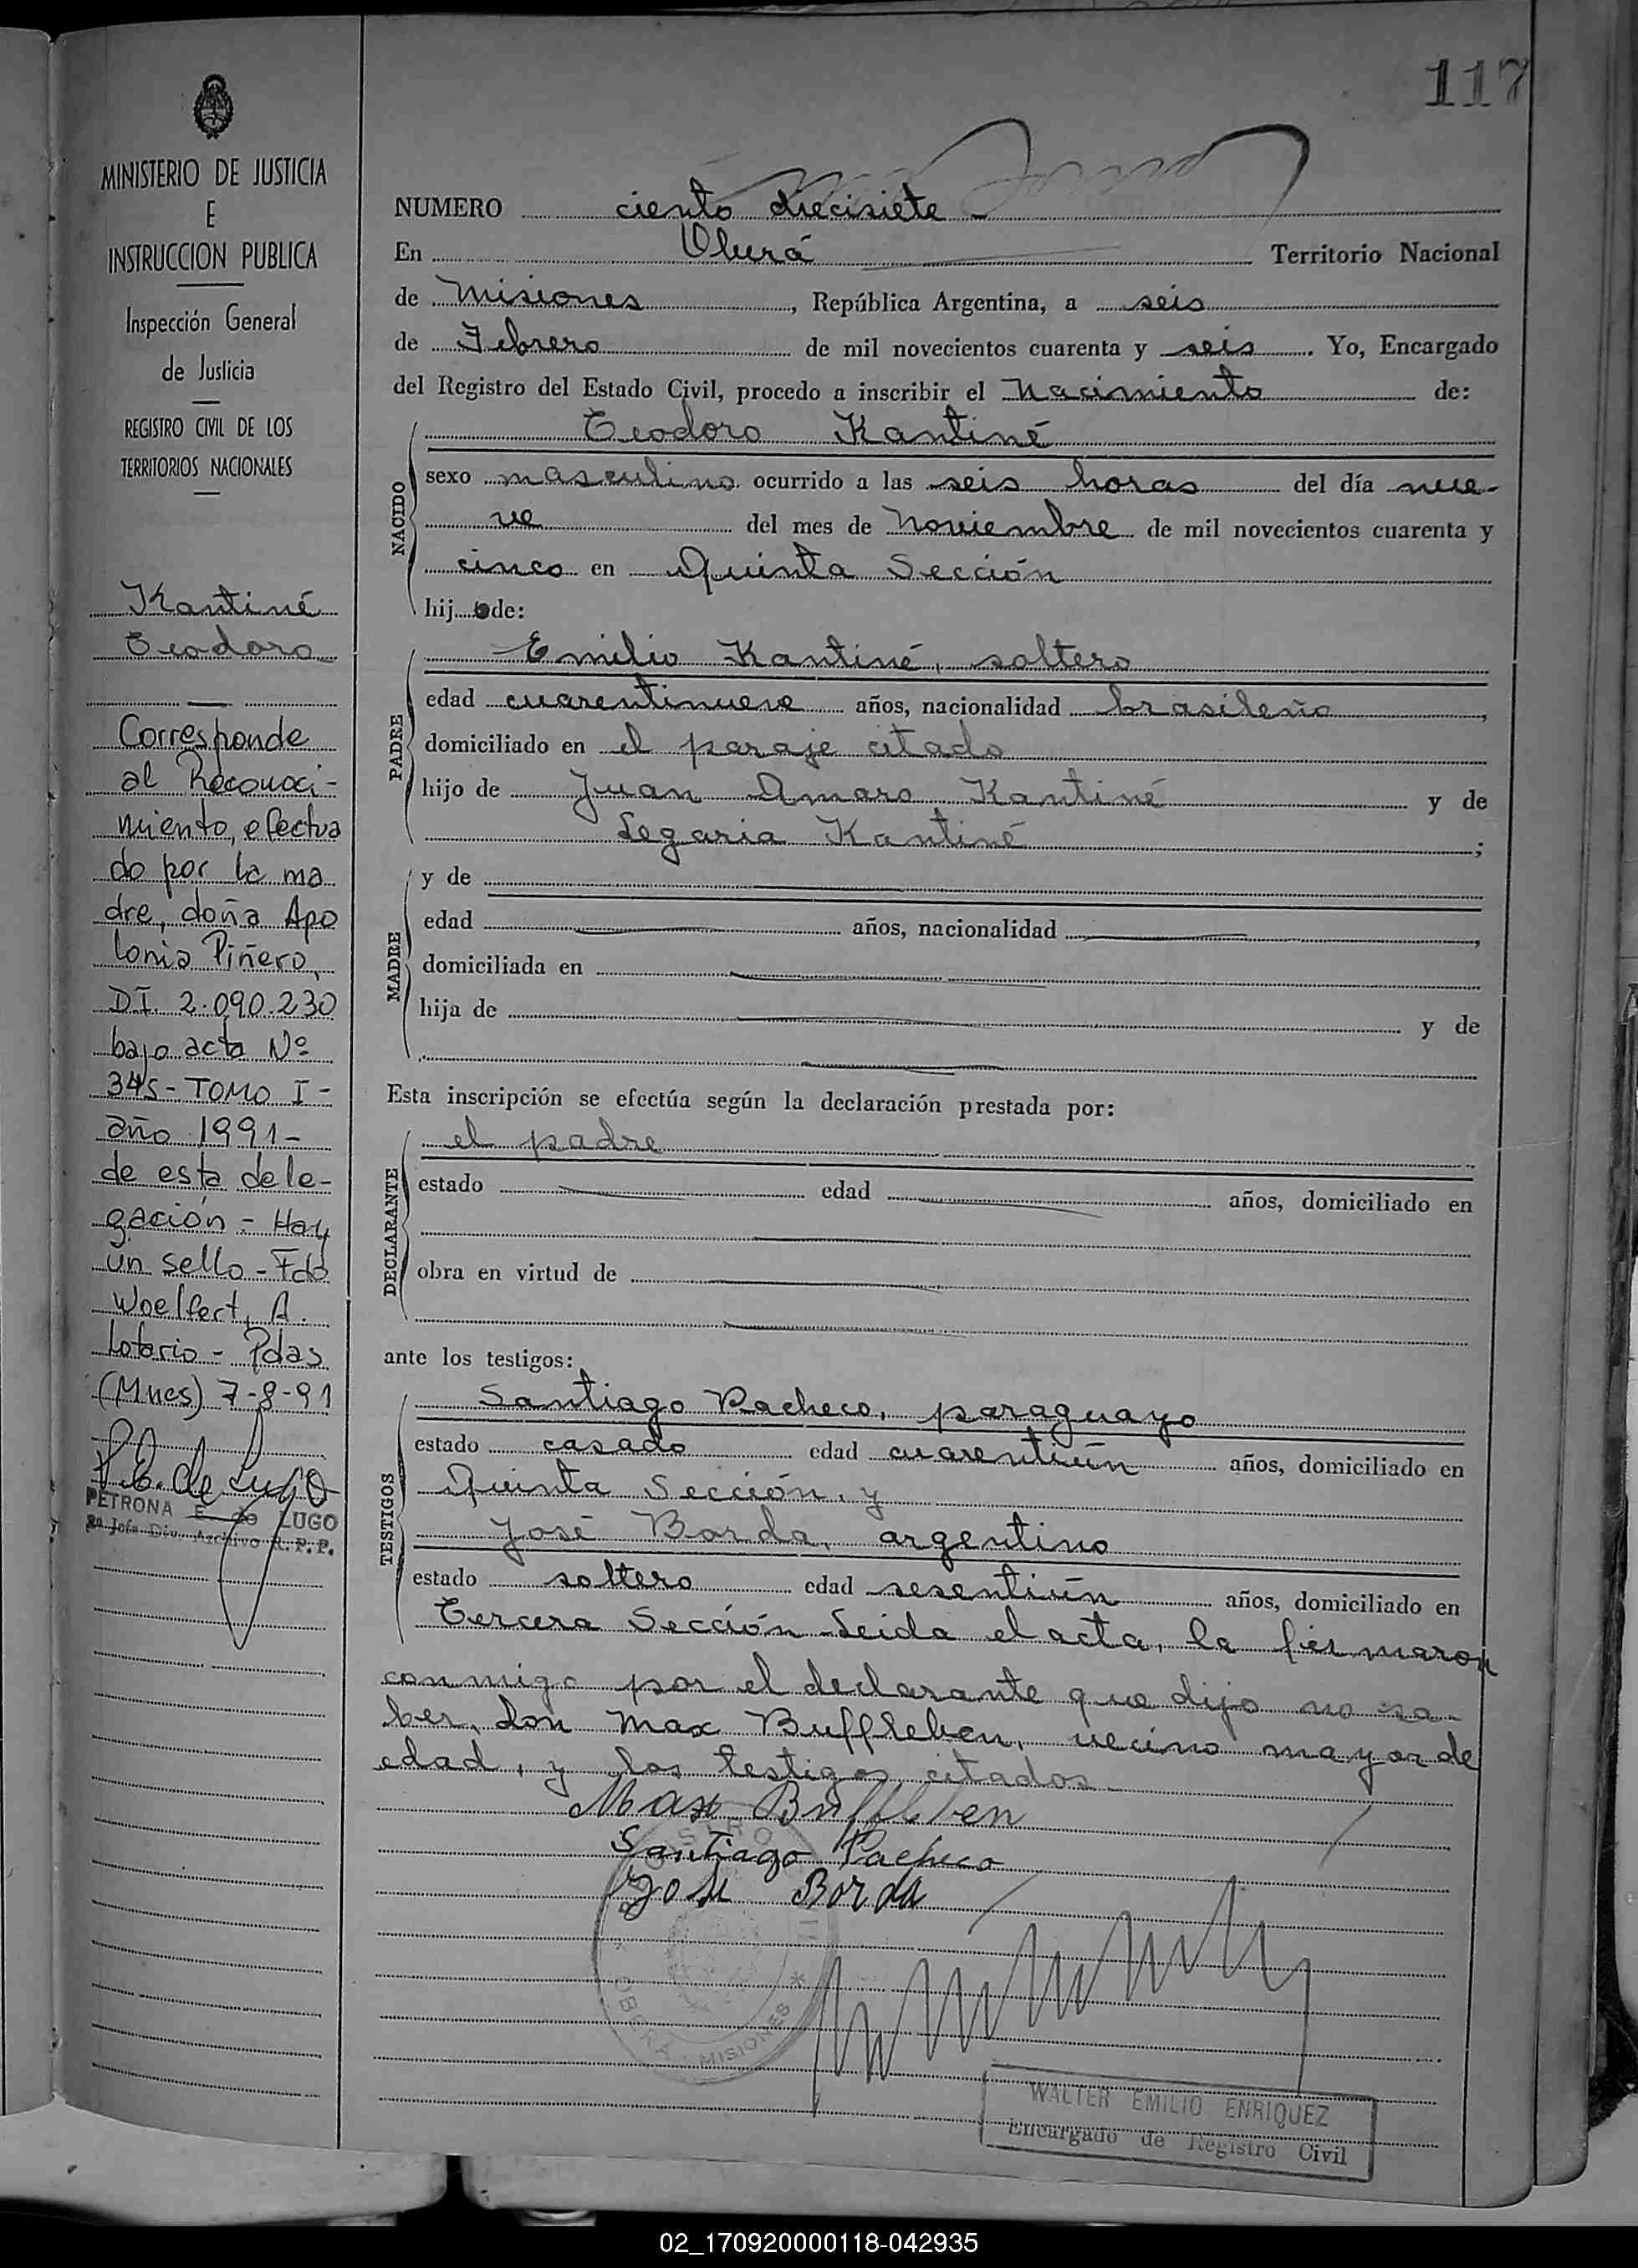 117
MINISTERIO DE JUSTICIA
E
INSTRUCCION PUBLICA
Inspección General
de Justicia
REGISTRO CIVIL DE LOS
TERRITORIOS NACIONALES
Kantiné
Teodoro
Corresponde
al Reconoci-
miento, efectua
do por la ma
dre, doña Apo
lonia Piñero,
DI. 2.090.230
bajo acta Nº
345 - TOMO I -
año 1991 -
de esta dele-
gación - Hay
un sello - Fdo
Woelfert, A.
Lotario - Pdas
(Mnes) 7-8-91
P. E. de Lugo
PETRONA E. de LUGO
2ª Jefa Div. Archivo R. P. P.
NUMERO ciento diecisiete -
En Oberá Territorio Nacional
de Misiones, República Argentina, a seis
de Febrero de mil novecientos cuarenta y seis. Yo, Encargado
del Registro del Estado Civil, procedo a inscribir el Nacimiento de:
NACIDO
Teodoro Kantiné
sexo masculino ocurrido a las seis horas del día nue-
ve del mes de Noviembre de mil novecientos cuarenta y
cinco en Quinta Sección
hijo de:
PADRE
Emilio Kantiné, soltero
edad cuarentinueve años, nacionalidad brasileño,
domiciliado en el paraje citado
hijo de Juan Amaro Kantiné y de
Legaria Kantiné;
MADRE
y de
edad años, nacionalidad,
domiciliada en
hija de y de
Esta inscripción se efectúa según la declaración prestada por:
DECLARANTE
el padre
estado edad años, domiciliado en
obra en virtud de
ante los testigos:
TESTIGOS
Santiago Pacheco, paraguayo
estado casado edad cuarentiún años, domiciliado en
Quinta Sección, y
José Borda, argentino
estado soltero edad sesentiún años, domiciliado en
Tercera Sección - Leida el acta, la firmaron
conmigo por el declarante que dijo no sa-
ber, don Max Buffleben, vecino mayor de
edad, y los testigos citados
Max Buffleben
Santiago Pacheco
José Borda
OBERA MISIONES
WALTER EMILIO ENRIQUEZ
Encargado de Registro Civil
02_170920000118-042935